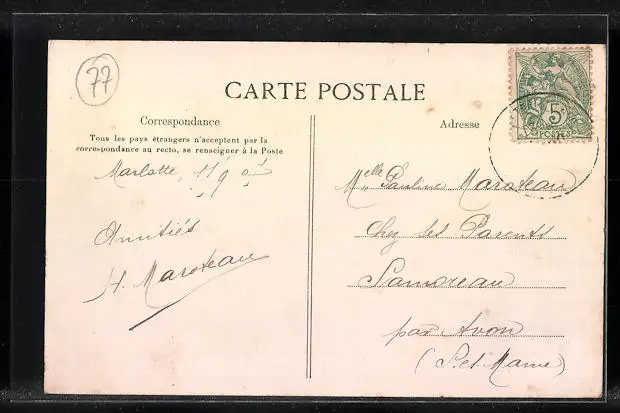 77
CARTE POSTALE
Correspondance
Tous les pays étrangers n'acceptent par la
correspondance au recto, se renseigner à la Poste
Adresse
5c
POSTES
Marlotte, 11/9 07
Amitiés
H. Maroteau
Melle Pauline Maroteau
chez ses Parents
Samoreau
par Avon
(S. et Marne)